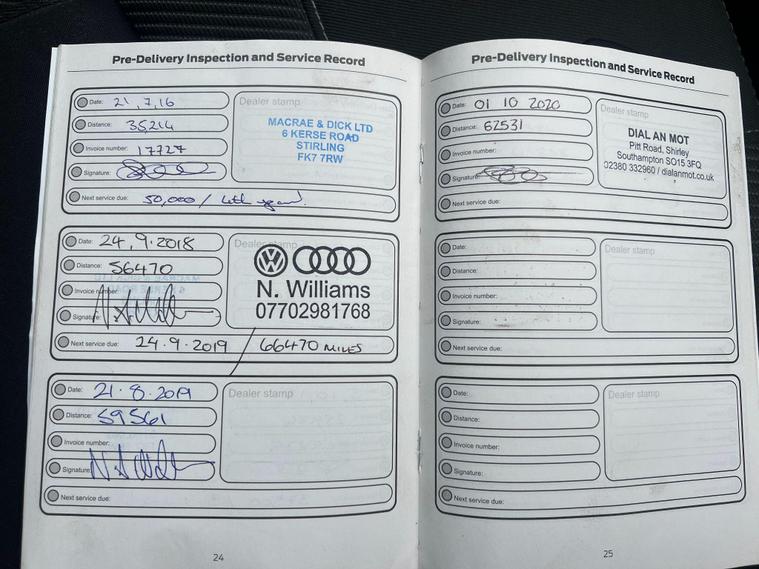 Pre-Delivery Inspection and Service Record
Date: 21,7,16
Distance: 35214
Invoice number: 17727
Signature:
Next service due: 50,000 / 4th year.
Dealer stamp
MACRAE & DICK LTD
6 KERSE ROAD
STIRLING
FK7 7RW
Date: 24.9.2018
Distance: 56470
Invoice number:
Signature:
Next service due: 24.9.2019 / 66470 MILES
Dealer stamp
N. Williams
07702981768
Date: 21.8.2019
Distance: 59561
Invoice number:
Signature:
Next service due:
Dealer stamp
24
Pre-Delivery Inspection and Service Record
Date: 01 10 2020
Distance: 62531
Invoice number:
Signature:
Next service due:
Dealer stamp
DIAL AN MOT
Pitt Road, Shirley
Southampton SO15 3FQ
02380 332960 / dialanmot.co.uk
Date:
Distance:
Invoice number:
Signature:
Next service due:
Dealer stamp
Date:
Distance:
Invoice number:
Signature:
Next service due:
Dealer stamp
25